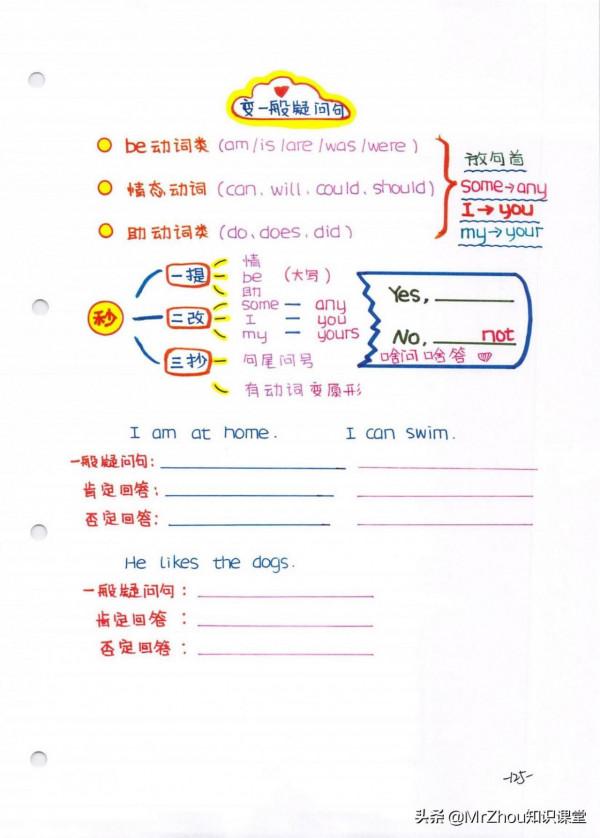 变一般疑问句
be动词类 (am/is/are/was/were)
情态动词 (can、will、could、should)
助动词类 (do、does、did)
放句首
some→any
I→you
my→your
秒
一提
情
be (大写)
助
二改
some — any
I — you
my — yours
三抄
句尾问号
有动词变原形
Yes,
No, not
啥问啥答
I am at home. I can swim.
一般疑问句:
肯定回答:
否定回答:
He likes the dogs.
一般疑问句:
肯定回答:
否定回答:
-125-
头条 @MrZhou知识课堂